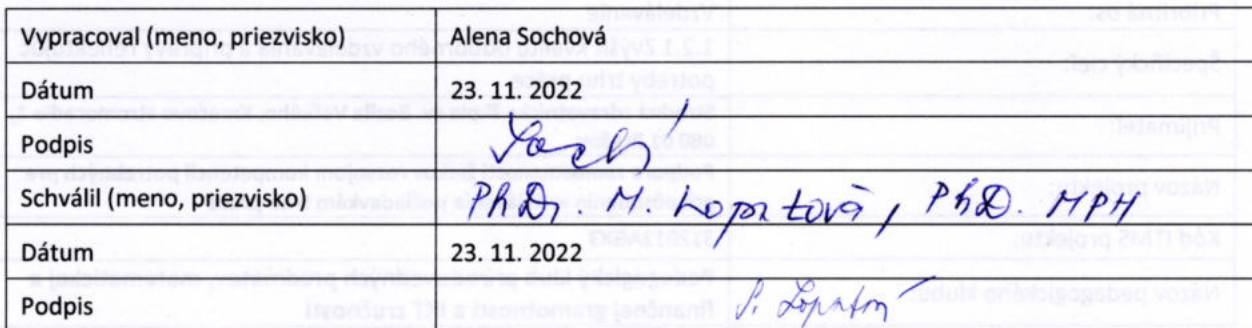 Vypracoval (meno, priezvisko) Alena Sochová
Dátum 23. 11. 2022
Podpis
Schválil (meno, priezvisko) PhDr. M. Lopatová, PhD. MPH
Dátum 23. 11. 2022
Podpis